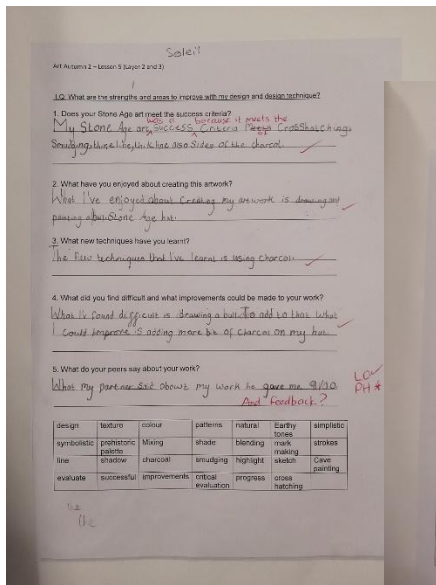 Soleil
Art Autumn 2 – Lesson 5 (Layer 2 and 3)
LQ: What are the strengths and areas to improve with my design and design technique?
1. Does your Stone Age art meet the success criteria?
was a because it meets the
My Stone Age art success Criteria Meets of Crosshatching,
Smudging, thine line, thik line also Sides of the charcol
2. What have you enjoyed about creating this artwork?
What I've enjoyed about Creating my artwork is drawing and
a Stone Age hut.
3. What new techniques have you learnt?
The new techniques that I've learns is using charcoal
4. What did you find difficult and what improvements could be made to your work?
What I've found difficlst is drawing a but. To add to that what
I could improve is adding more bit of charcol on my hut
5. What do your peers say about your work?
What my partner said about my work he gave me 9/10.
And feedback?
LO
PH *
design texture colour patterns natural Earthy tones simplistic
symbolistic prehistoric palette Mixing shade blending mark making strokes
line shadow charcoal smudging highlight sketch Cave painting
evaluate successful improvements critical evaluation progress cross hatching
the
the